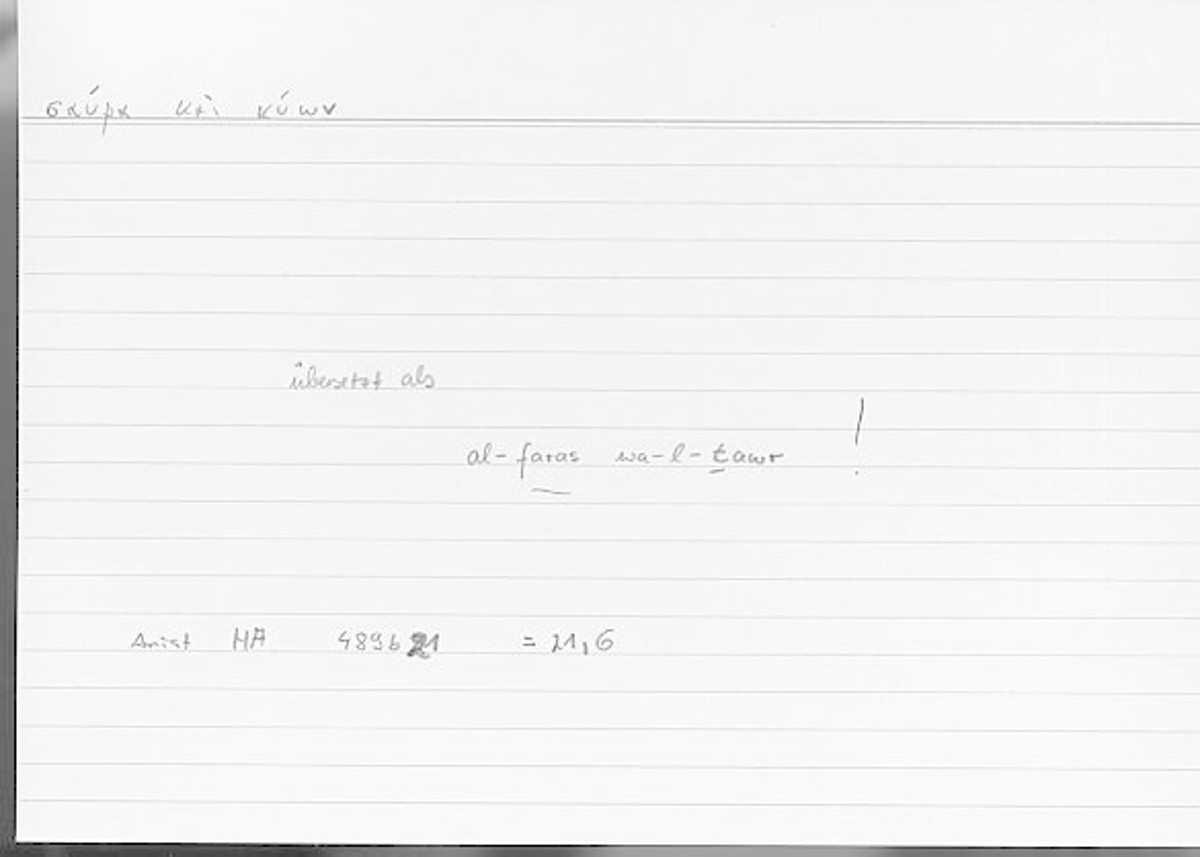 σαύρα καὶ κύων
übersetzt als
al-faras wa-l-ṯawr !
Arist HA 489b21 = 21,6